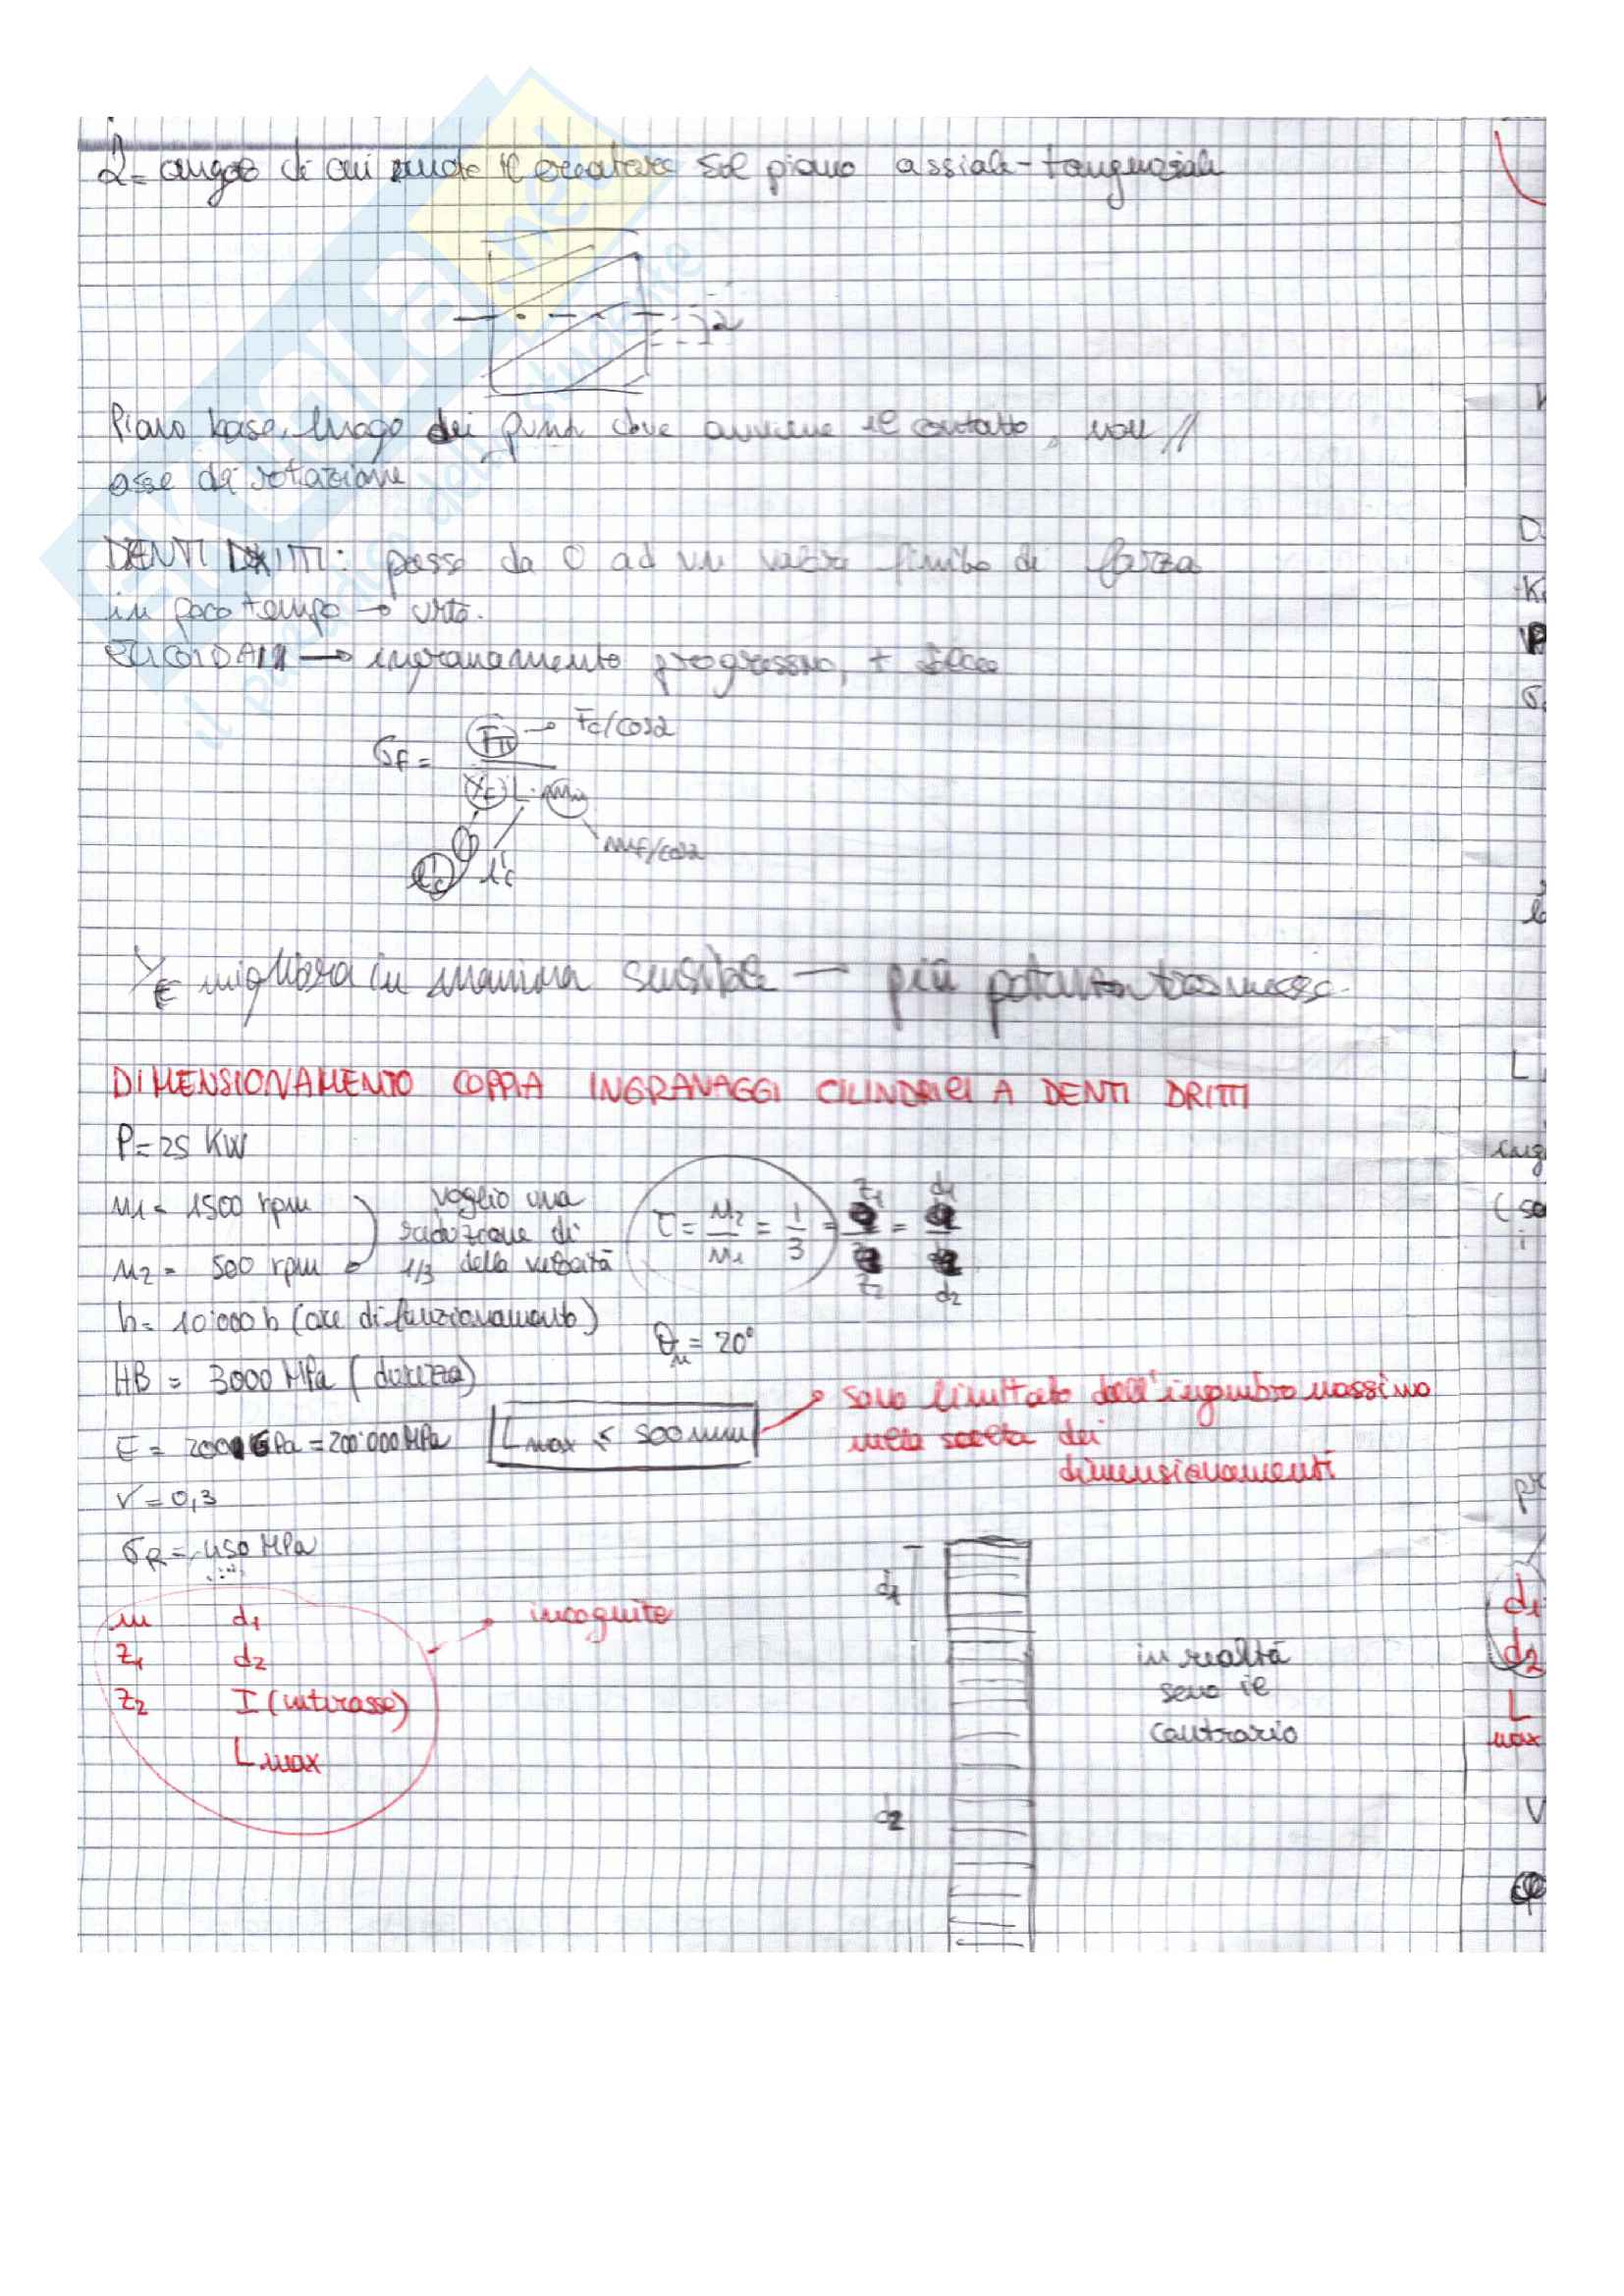 2 = angolo di cui ruoto il creatore sul piano assiale-tangenziale
2
Piano base, luogo dei punti dove avviene il contatto, non //
asse di rotazione
DENTI DRITTI: passo da 0 ad un valore finito di forza
in poco tempo → urto.
ELICOIDALI → ingranamento progressivo, +
σF = Fn → Fc/cos2
YF L · mn
mf/cos2
YF migliora in maniera sensibile — più potenza trasmessa.
DIMENSIONAMENTO COPPIA INGRANAGGI CILINDRICI A DENTI DRITTI
P = 25 KW
n1 = 1500 rpm
n2 = 500 rpm
voglio una
riduzione di
1/3 della velocità
τ = n2/n1 = 1/3 = z1/z2 = d1/d2
h = 10'000 h (ore di funzionamento)
θn = 20°
HB = 3000 MPa (durezza)
E = 200 GPa = 200'000 MPa
Lmax ≤ 500 mm
sono limitato dall'ingombro massimo
nella scelta dei
dimensionamenti
ν = 0,3
σR = 450 MPa
m d1
z1 d2
z2 I (interasse)
Lmax
incognite
d1
d2
in realtà
sono il
contrario
d1
d2
L
max